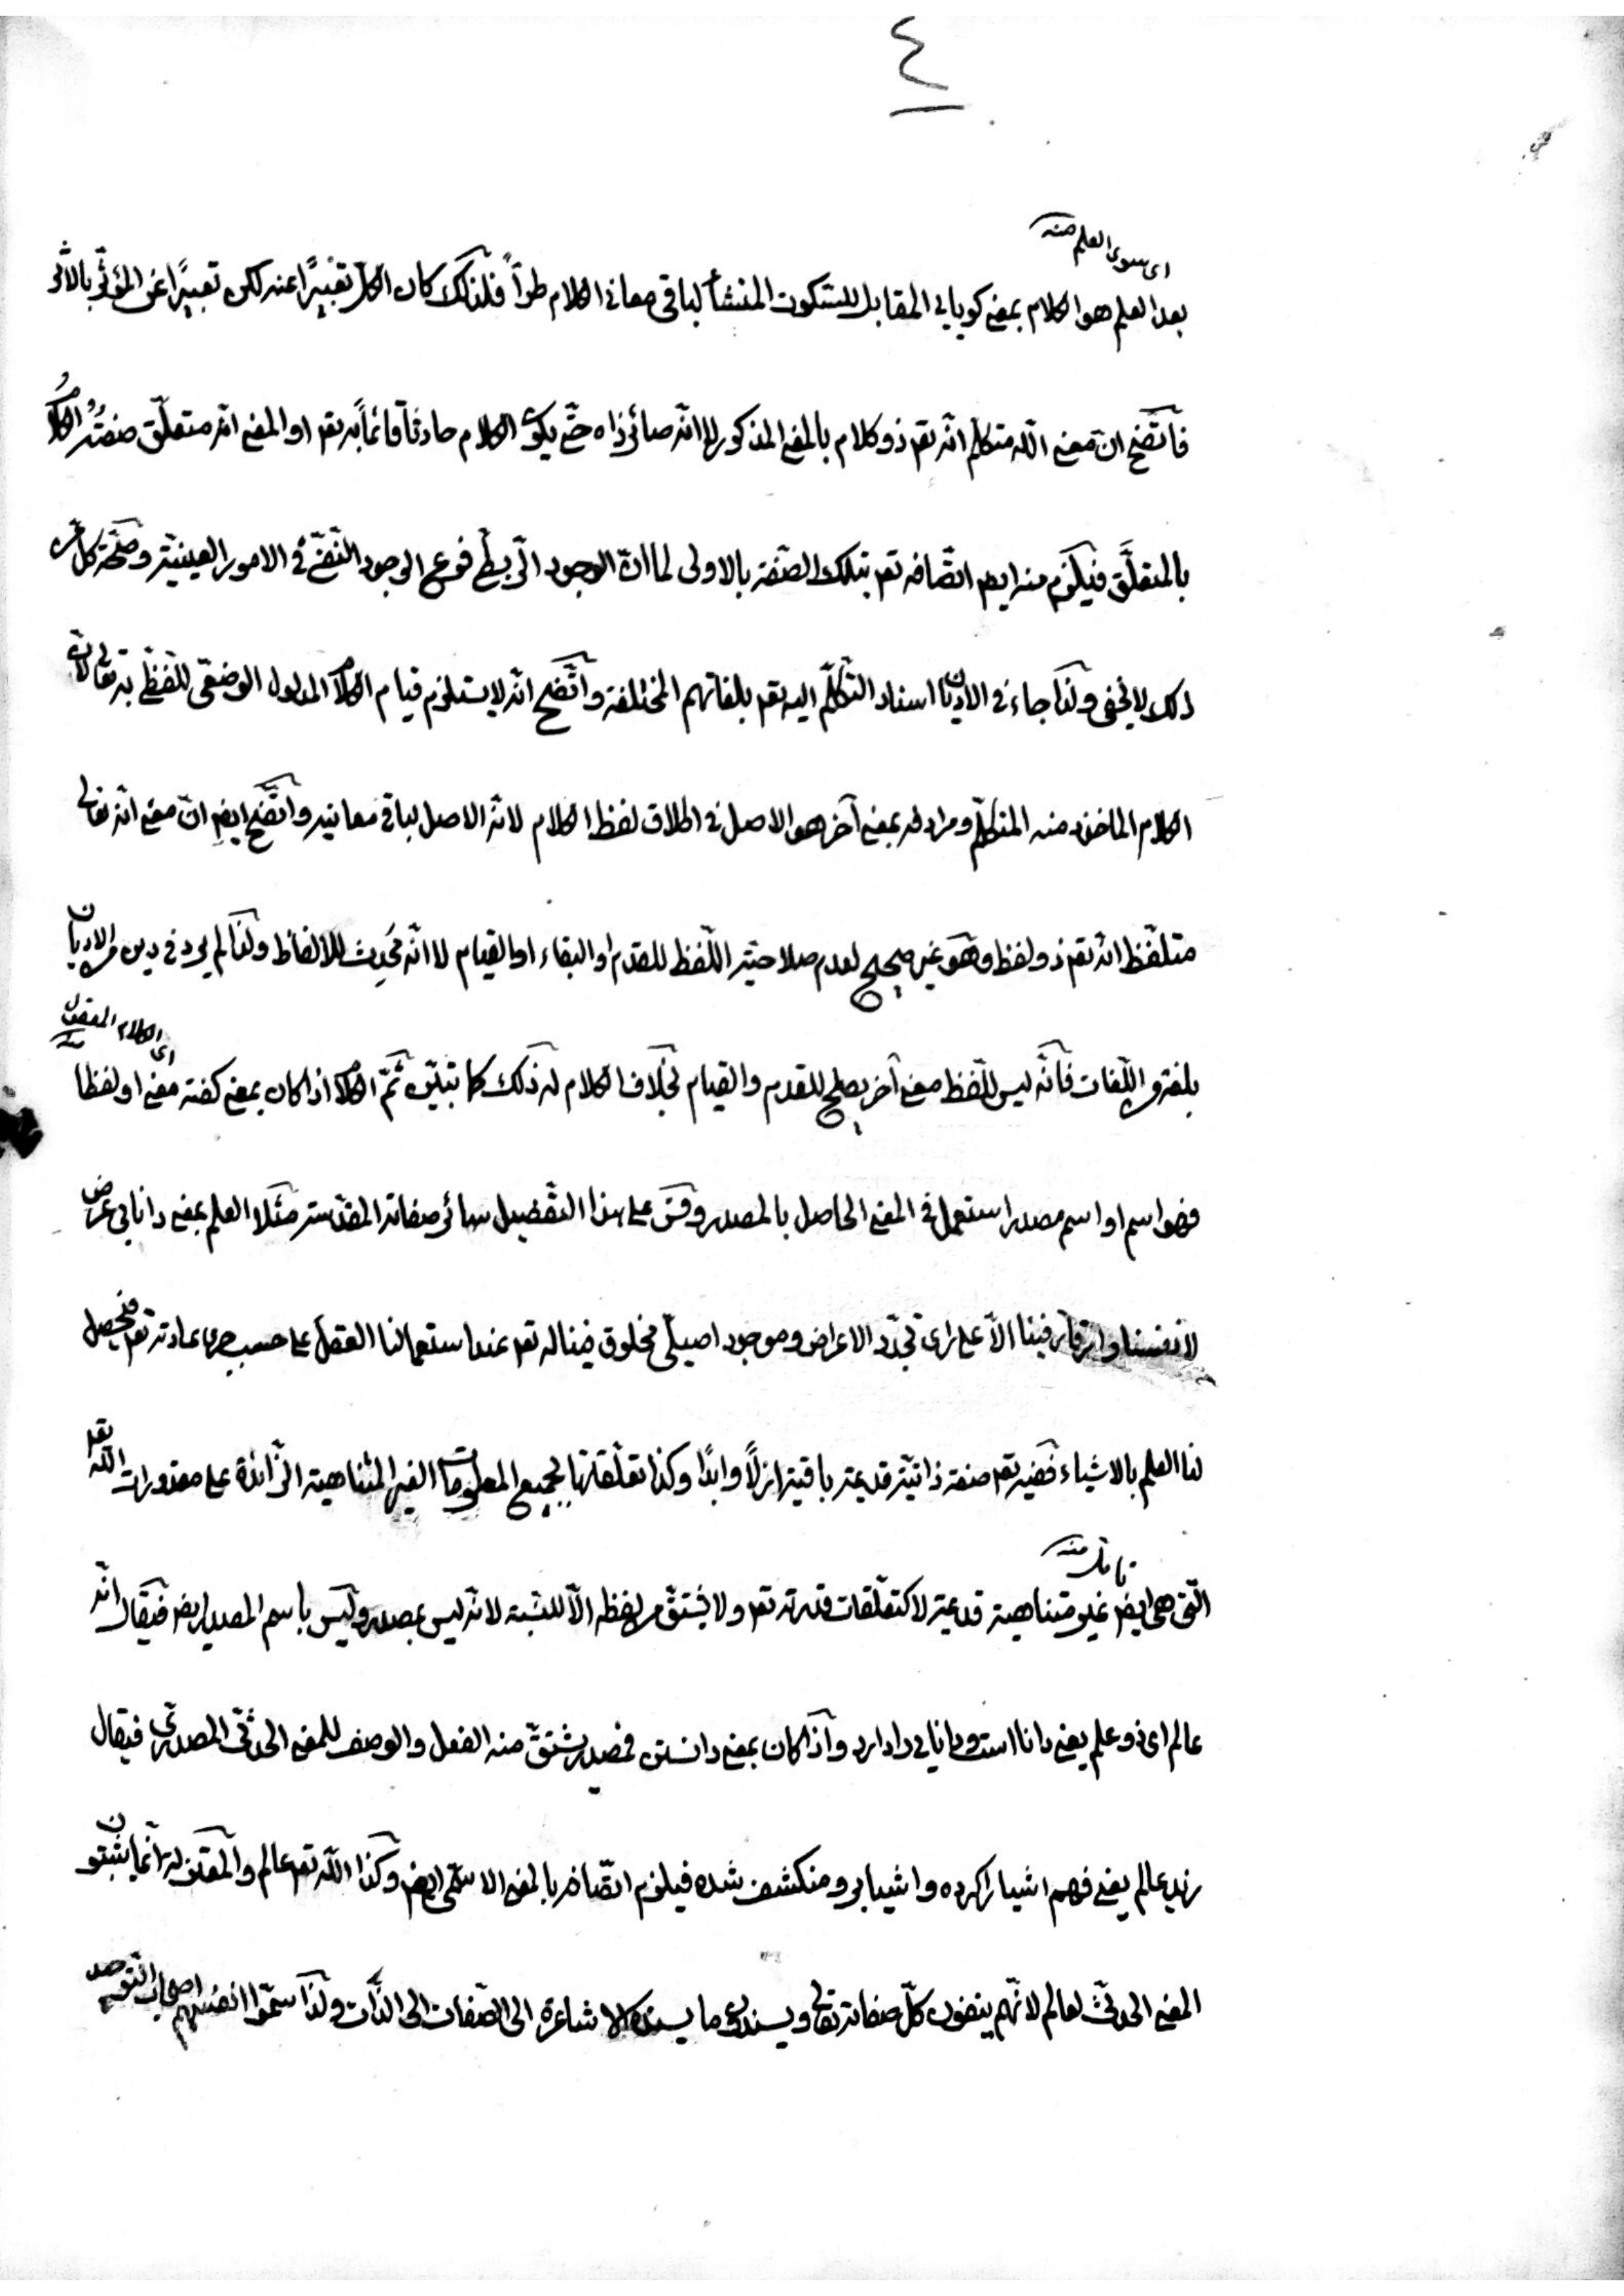 ٤
اى سوى العلم منه
بعد العلم هو الكلام بمعنى كويايى المقابل للسكوت المنشأ لباقى معانى الكلام طراً فلذلك كان الكل تعبيرًا عنه لكن تعبيرًا عن المؤثر بالاثر
فاتضح ان معنى الله متكلم انه تعم ذو كلام بالمعنى المذكور لا انه صائر ذاه حتى يكون الكلام حادثاً قائماً به تعم او المعنى انه متعلّق صفته الكلام
بالمتعلَّق فيلزم منه ايضا اتصافه تعم بتلك الصفة بالاولى لما ان الوجود الرّبطى فرع الوجود النّفسى فى الامور العينيّة وصحّة كل
ذلك لا يخفى ولذا جاء فى الاديان اسناد التكلّم اليه تعم بلغاتهم المختلفة واتّضح انه لا يستلزم قيام الكلام المدلول الوضعى للّفظ به تعالى لان
الكلام الماخوذ منه المتكلّم ومراد له بمعنى آخر هو الاصل فى اطلاق لفظ الكلام لانه الاصل لباقى معانيه واتّضح ايضا ان معنى انه تعالى
متلفّظ انه تعم ذو لفظ وهو غير صحيح لعدم صلاحيّة اللّفظ للقدم او البقاء او القيام لا انه محدِث للالفاظ ولذا لم يرد فى دين من الاديان
اى الكلام المعقول منه
بلغة من اللّغات فانّه ليس للّفظ معنى آخر يصلح للقدم والقيام بخلاف الكلام له ذلك كما تبيّن ثمّ الكلام اذا كان بمعنى كفته معنى او لفظا
فهو اسم او اسم مصدر استعمل فى المعنى الحاصل بالمصدر وقس على هذا التفصيل سائر صفاته المقدّسة مثلا العلم بمعنى دانايى عرض
لانفسنا فينا الاّ على راى تجدّد الاعراض وموجود اصيلى مخلوق فينا له تعم عند استعمالنا العقل على حسب جرى عادته تعم فيحصل
لنا العلم بالاشياء فهى تعم صفة ذاتيّة قديمة باقية ازلاً وابدًا وكذا تعلّقاتها لجميع المعلومات الغير المتناهية الزّائدة على مقدورات الله تعم
تأمل منه
التى هى ايضا غير متناهية قديمة لا كتعلّقات قدرته تعم ولا يشتق من لفظه الاّ للنسبة لانه ليس بمصدر وليس باسم المصدر ايضا فيقال انه
عالم اى ذو علم يعنى دانا است ودانايى را دارد واذا كان بمعنى دانستن فمصدر يشتقّ منه الفعل والوصف للمعنى الحدثى المصدرى فيقال
زيد عالم يعنى فهم اشيا را كرده واشيا بر او منكشف شده فيلزم اتّصافه بالمعنى الاسمى ايضا وكذا الله تعم عالم والمعتزلة انّما يثبتون
المعنى الحدثى لعالم لانّهم ينفون كلّ صفاته تعالى ويسندون ما يسنده الاشاعرة الى الصّفات الى الذّات ولذا سمّوا انفسهم اصحاب التّوحيد